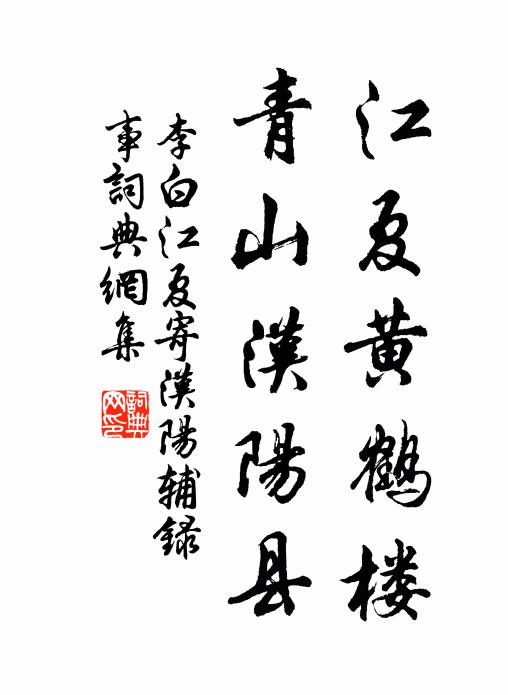 江夏黄鹤楼
青山漢陽县
李白江夏寄漢陽辅録
事詞典網集
詞典
网印